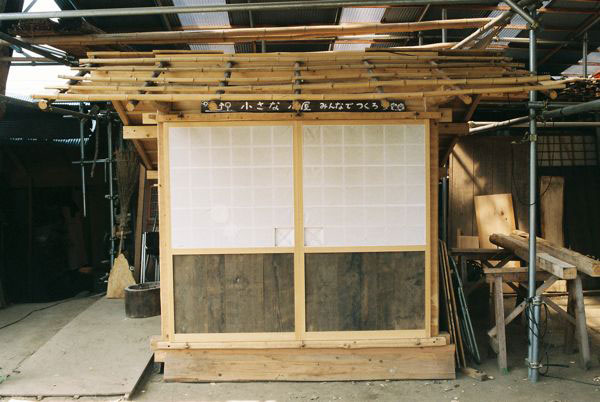 小さな小屋 みんなでつくろう